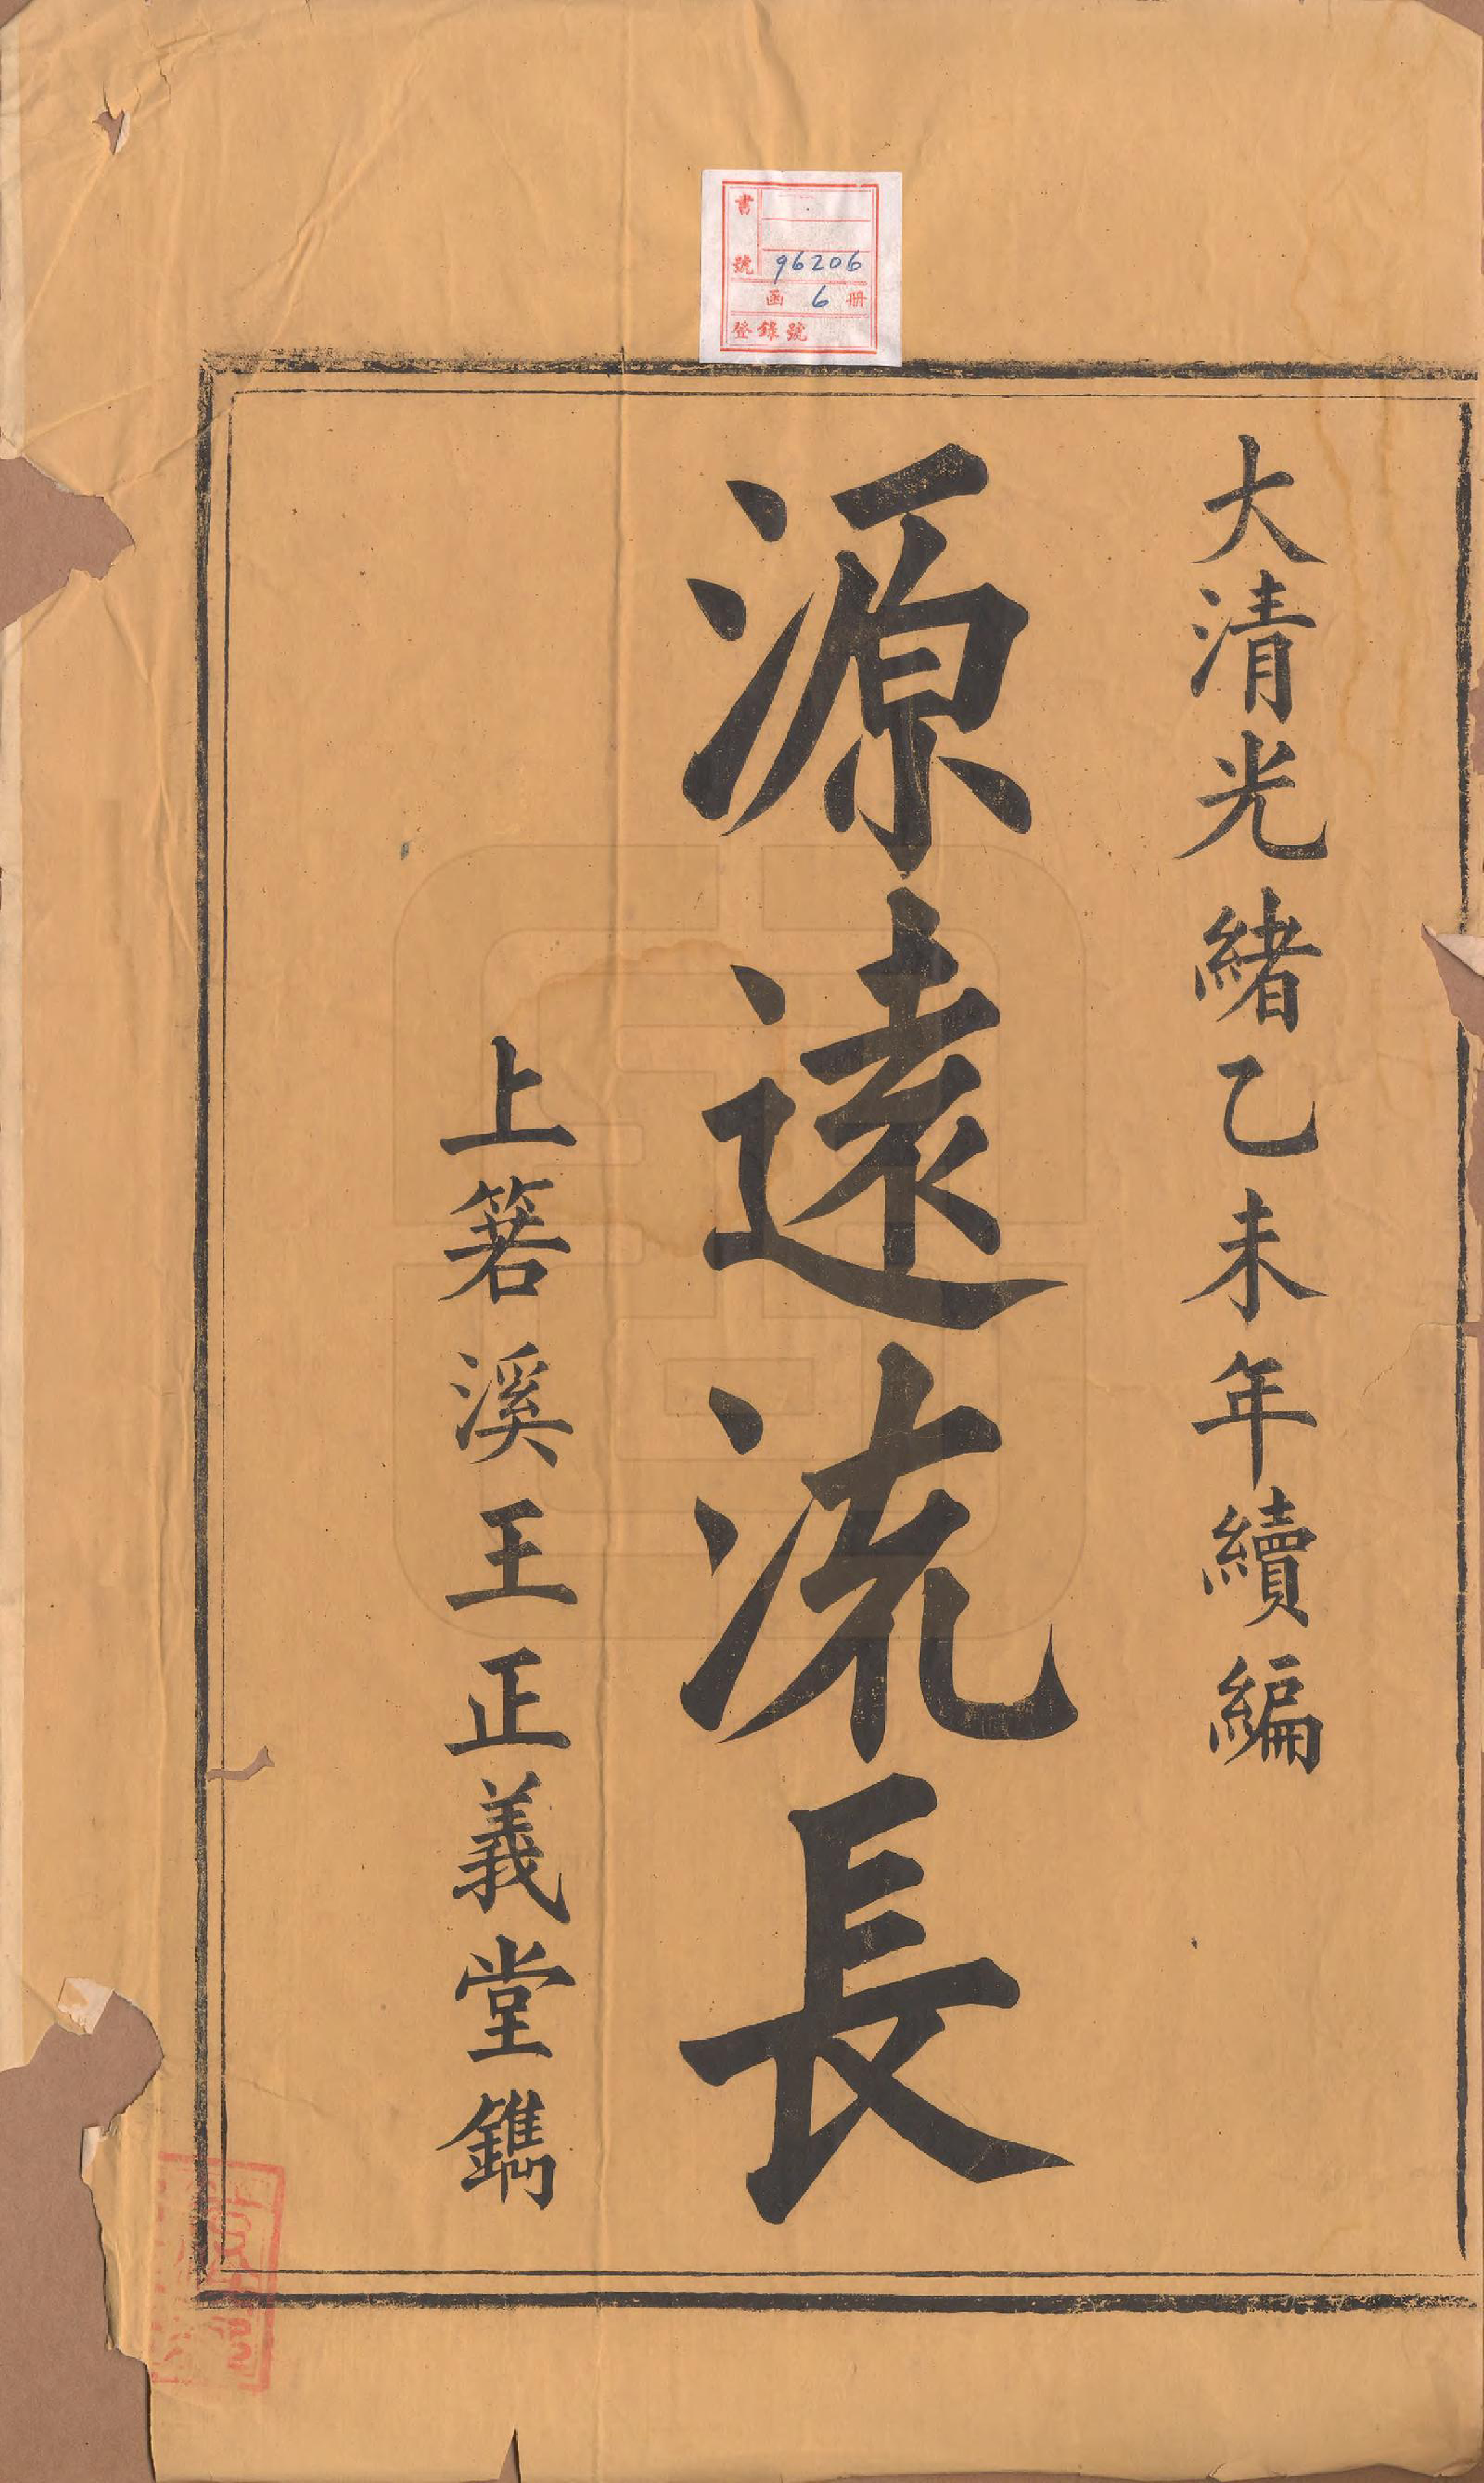 書號 96206
函 6 冊
登錄號
大清光緒乙未年續編
源遠流長
上箬溪王正義堂鐫